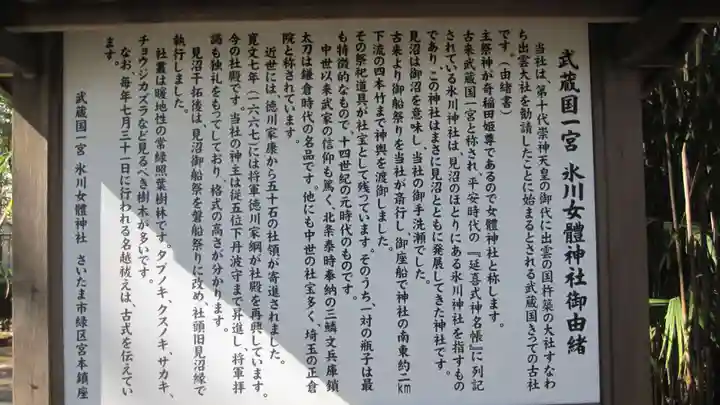 武蔵国一宮 氷川女體神社御由緒
当社は、第十代崇神天皇の御代に出雲の国杵築の大社すなわ
ち出雲大社を勧請したことに始まるとされる武蔵国きっての古社
です。(由緒書)
主祭神が奇稲田姫尊であるので女體神社と称します。
古来武蔵国一宮と称され、平安時代の『延喜式神名帳』に列記
されている氷川神社は、見沼のほとりにある氷川神社を指すもの
であり、この神社はまさに見沼とともに発展してきた神社です。
見沼は御沼を意味し、当社の御手洗瀬でした。
古来より御船祭りを当社が斎行し、御座船で神社の南東約二㎞
下流の四本竹まで神輿を渡御しました。
その祭祀道具が社宝として残っています。そのうち、一対の瓶子は最
も特徴的なもので、十四世紀の元時代のものです。
中世以来武家の信仰も篤く、北条泰時奉納の三鱗文兵庫鎖
太刀は鎌倉時代の名品です。他にも中世の社宝多く、埼玉の正倉
院と称されています。
近世には、徳川家康から五十石の社領が寄進されました。
寛文七年(一六六七)には将軍徳川家綱が社殿を再興しています。
今の社殿です。当社の神主は従五位下丹波守まで昇進し、将軍拝
謁も独礼をもってしており、格式の高さが分かります。
見沼干拓後は、見沼御船祭を磐船祭りに改め、社頭旧見沼縁で
執行しました。
社叢は暖地性の常緑照葉樹林です。タブノキ、クスノキ、サカキ、
チョウジカズラなど見るべき樹木が多いです。
なお、毎年七月三十一日に行われる名越祓えは、古式を伝えてい
ます。
武蔵国一宮 氷川女體神社 さいたま市緑区宮本鎮座